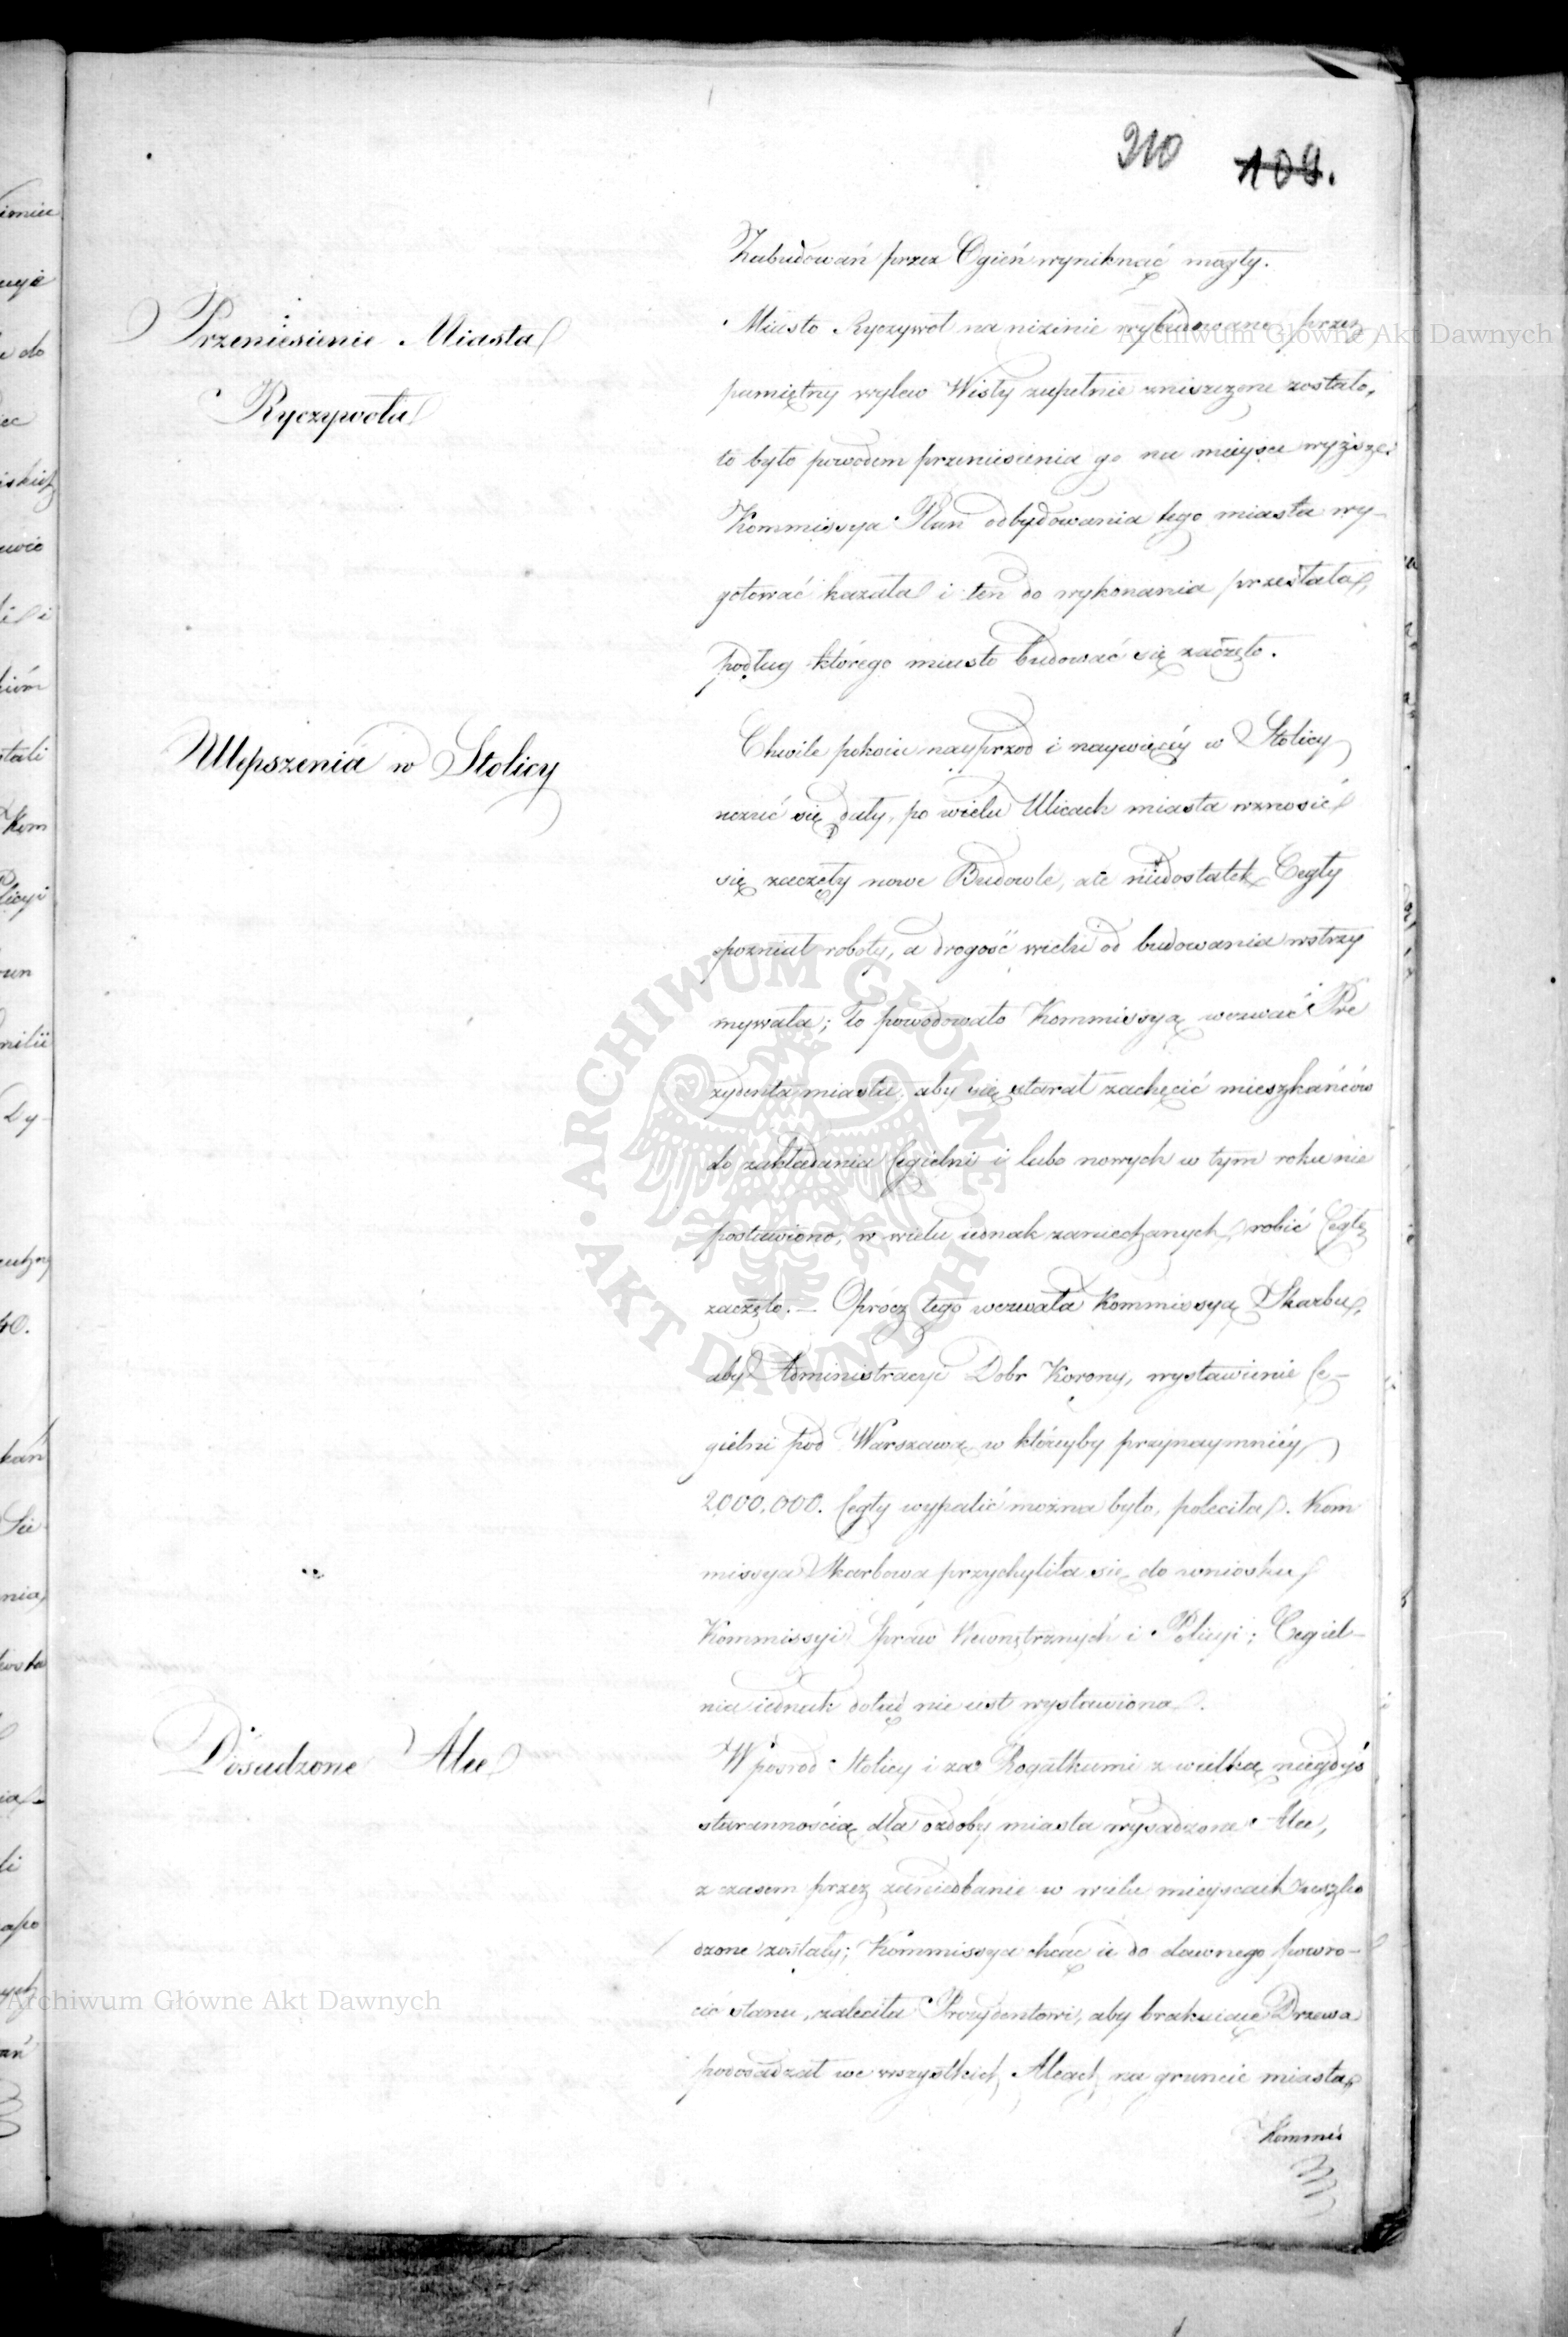 210 109.
Zabudowań przez Ogień wyniknąć mogły.
Przeniesienie Miasta
Ryczywoła
Miasto Ryczywoł na nizinie wybudowane przez
pamiętny wylew Wisły zupełnie zniszczone zostało,
to było powodem przeniesienia go na mieysce wyższe.
Kommissya Plan odbudowania tego miasta wy-
gotować kazała i ten do wykonania przesłała,
podług którego miasto budować się zaczęło.
Ulepszenia w Stolicy
Chwile pokoiu nayprzod i naywięcéy w Stolicy
uczuć się dały, po wielu Ulicach miasta wznosić
się zaczęły nowe Budowle, ale niedostatek Cegły
spozniał roboty, a drogość wielu od budowania wstrzy
mywała; to powodowało Kommissyą wezwać Pre
zydenta miasta, aby się starał zachęcić mieszkańców
do zakładania Cegielni i lubo nowych w tym roku nie
postawiono, w wielu iednak zaniechanych, robić Cegłę
zaczęto. — Oprócz tego wezwała Kommissyą Skarbu,
aby Administracyi Dobr Korony, wystawienie Ce-
gielni pod Warszawą w któreyby przynaymniéy
2000,000. Cegły wypalić można było, poleciła. Kom
missya Skarbowa przychyliła się do wniosku
Kommissyi Spraw Wewnętrznych i Policyi; Cegiel-
nia iednak dotąd nie iest wystawiona.
Dosadzone Alee
W posrod Stolicy i za Rogatkami z wielką niegdyś
starannością dla ozdoby miasta wysadzone Alee,
z czasem przez zaniedbanie w wielu mieyscach uszko
dzone zostały; Kommissya chcąc ie do dawnego powro-
cić stanu, zaleciła Prezydentowi, aby brakuiące Drzewa
podosadzał we wszystkich Aleach na gruncie miasta
Kommis
Archiwum Główne Akt Dawnych
ARCHIWUM GŁÓWNE AKT DAWNYCH
Archiwum Główne Akt Dawnych